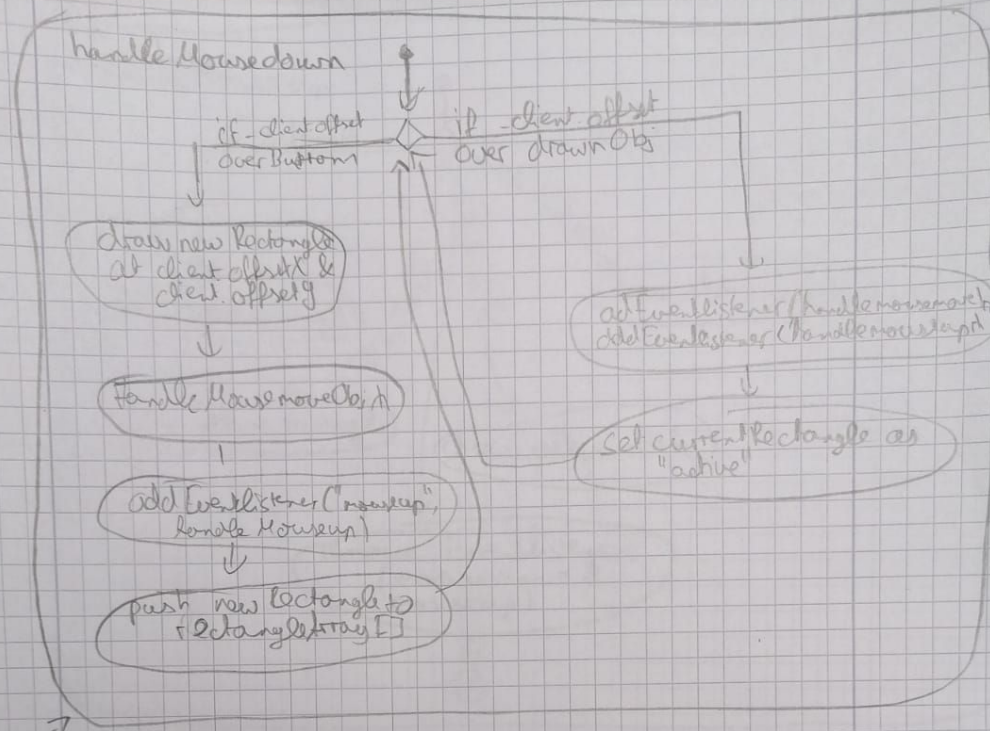 handle Mousedown
if _client offset
over Buttom
if _client.offset
over drawnObj
draw new Rectangle
at client offsetX &
client.offsety
Handle MousemoveObj
addEventlistener("mouseup",
handle Mouseup)
push new Rectangle to
rectangleArray []
addEventlistener(handlemousemove
addEventlistener(
set currentRectangle as
"active"